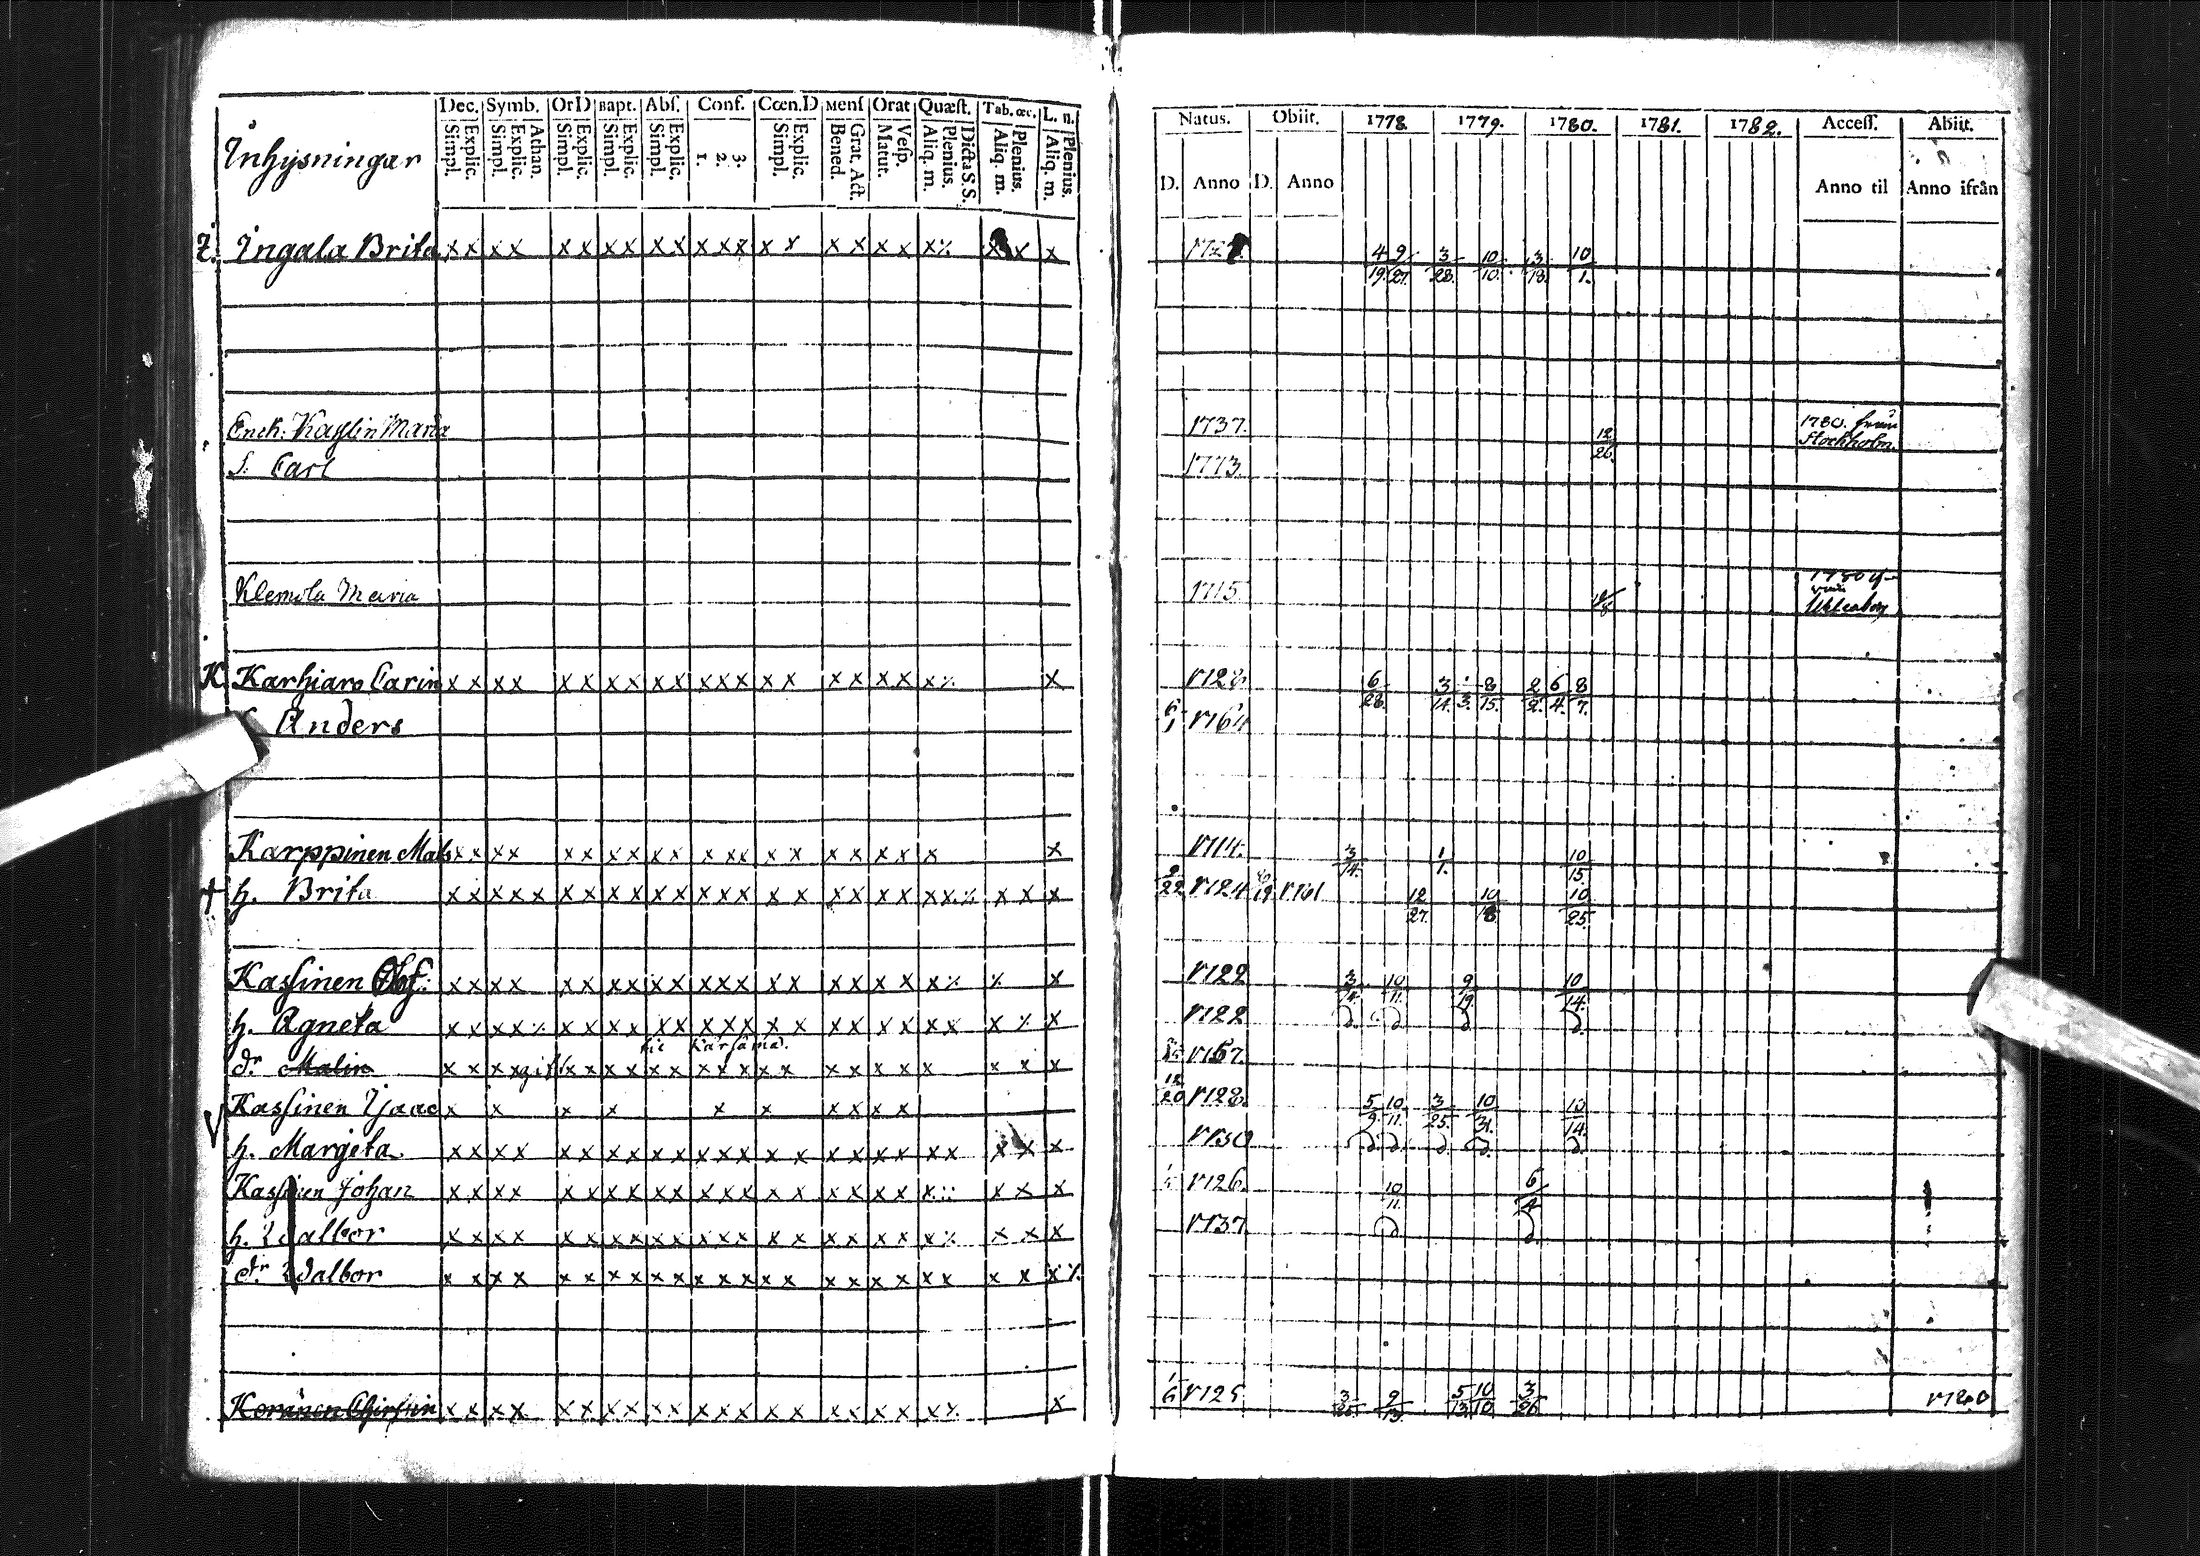 Dec. Symb. OrD Bapt. Abſ. Conf. Cœn.D Menſ Orat Quæſt. Tab. œc. L. n.
Inhysningar
Simpl. Explic. Simpl. Explic. Athan. Simpl. Explic. Simpl. Explic. Simpl. Explic. 1. 2. 3. Simpl. Explic. Bened. Grat. Act. Matut. Veſp. Aliq. m. Plenius. Dicta S.S. Aliq. m. Plenius. Aliq. m. Plenius.
Ingala Brita x x x x x x x x x x x x x x x x x x x x x x x
Enck: Maria
S. Carl
Klemola Maria
K Karhiaro Carin x x x x x x x x x x x x x x x x x x x x x
Anders
Karppinen Mats x x x x x x x x x x x x x x x x x x x x x
h. Brita x x x x x x x x x x x x x x x x x x x x x x x x x
Kasſinen x x x x x x x x x x x x x x x x x x x x x
h. Agneta x x x x x x x x x x x x x x x x x x x x x x x
dr Malin x x x x gift x x x x x x x x x x x x x x x x x x x
Kasſinen Isaac x x x x x x x x x x
h. Margeta x x x x x x x x x x x x x x x x x x x x x x x x
Kasſinen Johan x x x x x x x x x x x x x x x x x x x x x x x
h. Walbor x x x x x x x x x x x x x x x x x x x x x x x
dr Walbor x x x x x x x x x x x x x x x x x x x x x x x x
x x x x x x x x x x x x x x x x x x x x x
Natus. Obiit. 1778. 1779. 1780. 1781. 1782. Acceſſ. Abiit.
D. Anno D. Anno Anno til Anno ifrån
4/19. 9/27. 3/28. 10/10. 3/18. 10/1.
1737. 12/26. 1780. från
Stockholm.
1773.
1715.
Uhleåborg
6/28. 3/14. 8/15. 2/2. 6/4. 8/7.
6/1 1764
1714. 3/14. 1/1. 10/15.
2/22 1724 12/27. 10/18. 10/25.
1722 3/14. 10/11. 9/19. 10/14.
1722
1767.
12/20 1728. 5/9. 10/11. 3/25. 10/31. 10/14.
1730
1726. 10/11. 6/4.
1737.
1/6 1725 3/25. 9/13. 5/13 10/10 3/26 1780